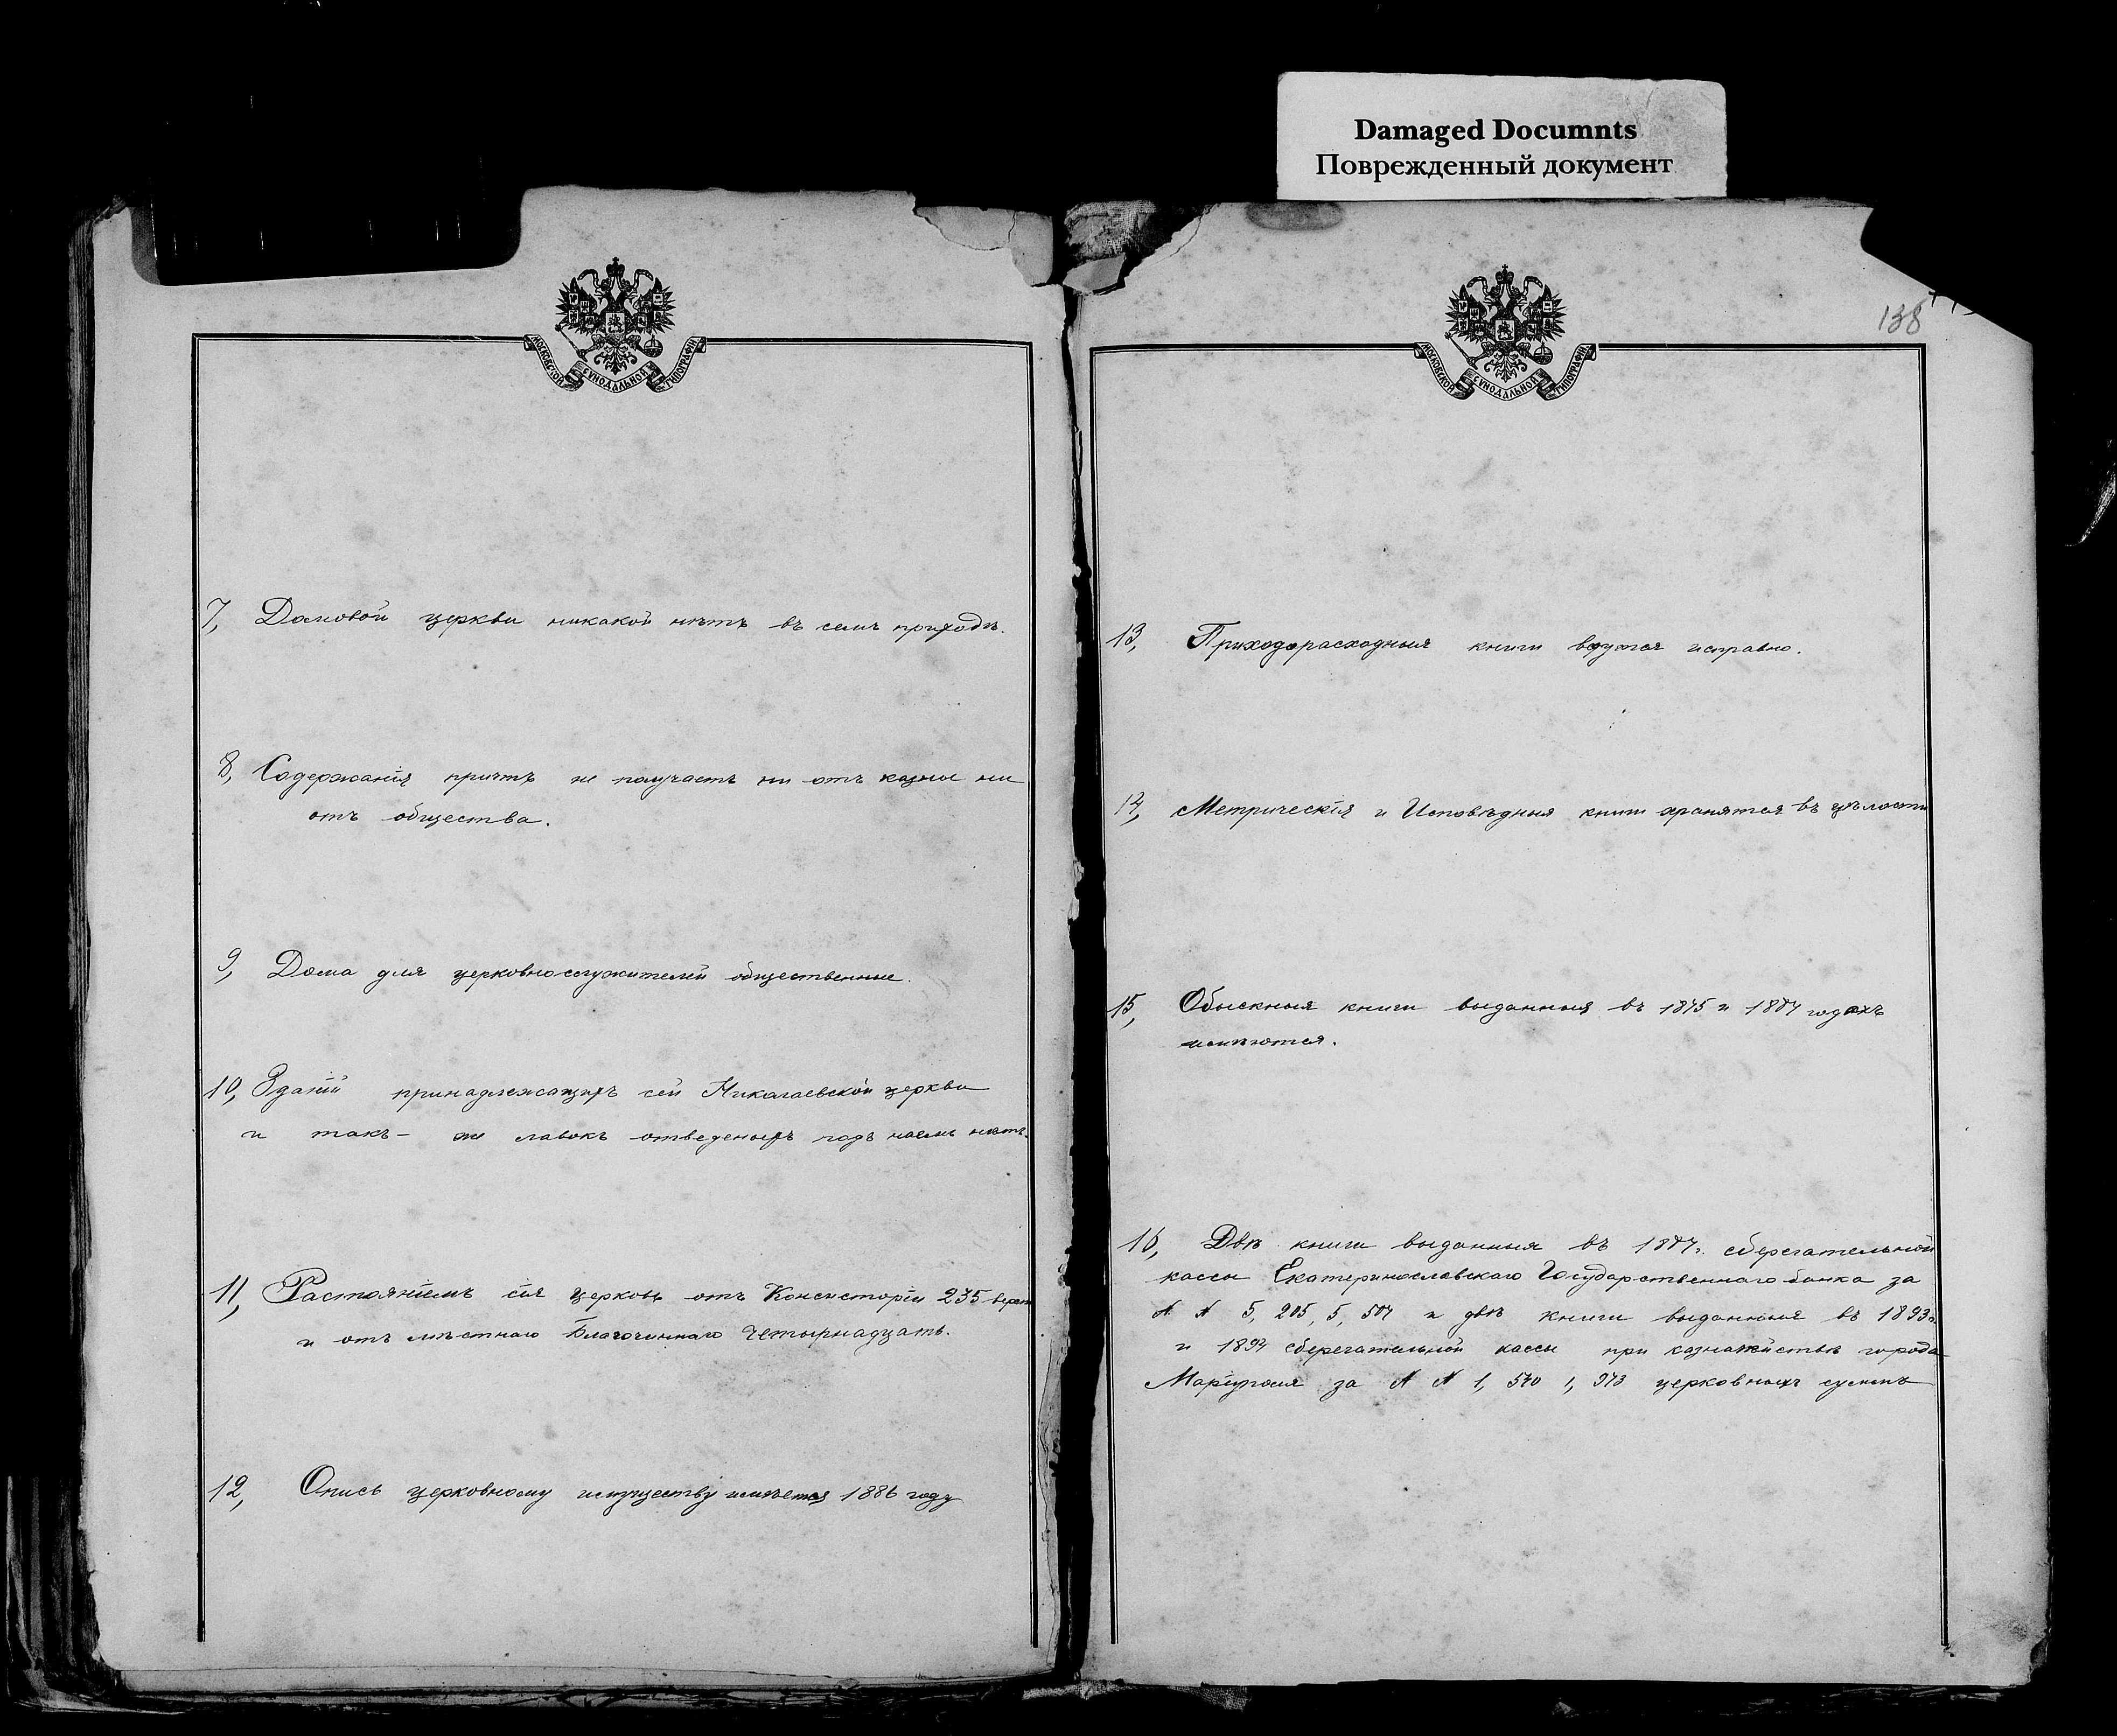 Damaged Documnts
Поврежденный документ
МОСКОВСКОЙ СѴНОДАЛЬНОЙ ТИПОГРАФІИ
7, Домовой церкви никакой нѣтъ въ семъ приходѣ.
8, Содержанія причтъ не получаетъ ни отъ казны ни
отъ общества.
9, Дома для церковнослужителей общественные.
10, Зданій принадлежащихъ сей Николаевской церкви
и такъ- же лавокъ отведеныхъ подъ наемъ нѣтъ.
11, Растояніемъ сія церковь отъ Консисторіи 235 верст
и отъ мѣстнаго Благочиннаго четырнадцать.
12, Опись церковному имуществу имѣется 1886 году
138
МОСКОВСКОЙ СѴНОДАЛЬНОЙ ТИПОГРАФІИ
13, Приходорасходныя книги ведутся исправно.
14, Метрическія и Исповѣдныя книги хранятся въ цѣлости
15, Обыскныя книги выданныя въ 1875 и 1887 годахъ
имѣются.
16, Двѣ книги выданныя въ 1887г. сберегательной
кассы Екатеринославскаго Государственнаго банка за
№ № 5, 205, 5, 507 и двѣ книги выданныя въ 1893г.
и 1894 сберегательной кассы при казначействѣ города
Маріуполя за № № 1, 570 1, 973 церковныхъ суммъ